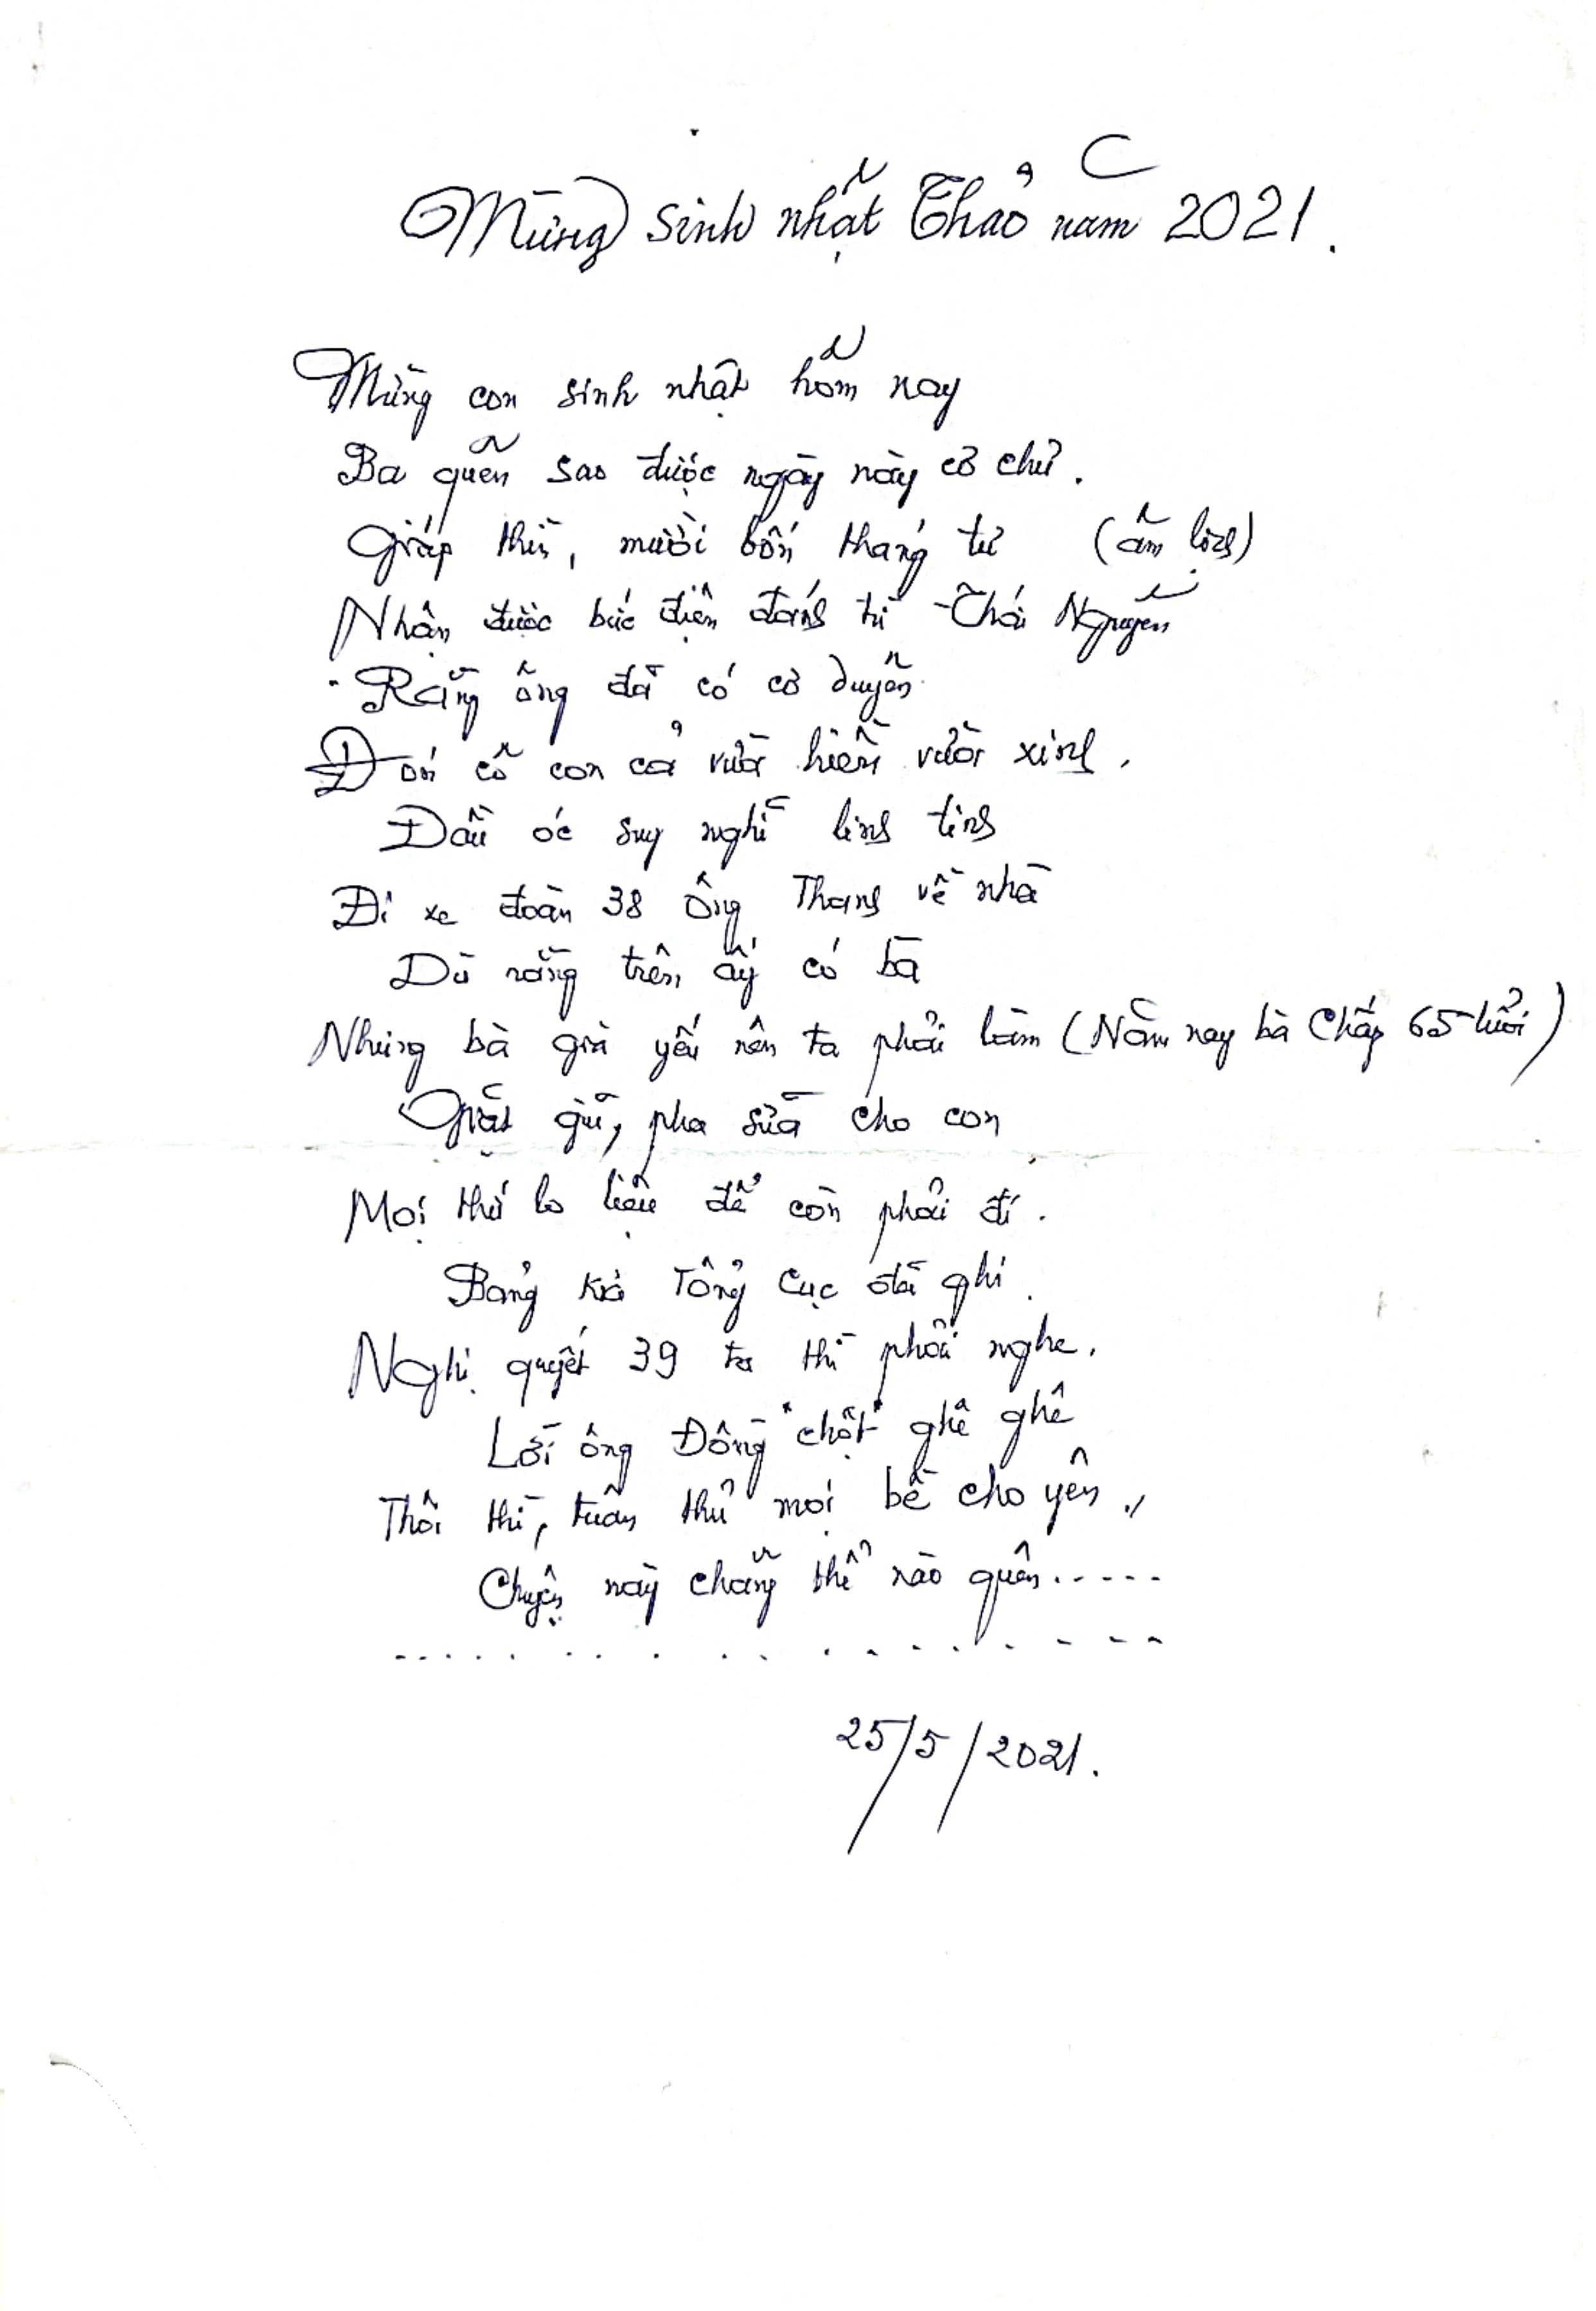 Mừng sinh nhật Thảo năm 2021.
Mừng con sinh nhật hôm nay
Ba quên sao được ngày này cơ chứ.
Giáp thìn, mười bốn tháng tư (âm lịch)
Nhận được bức điện đánh từ Thái Nguyên
Rằng ông đã có cơ duyên
Đón cô con cả vừa hiền vừa xinh.
Đầu óc suy nghĩ linh tinh
Đi xe đoàn 38 ông Thang về nhà
Dù rằng trên ấy có bà
Nhưng bà già yếu nên ta phải làm (Năm nay bà Chấp 65 tuổi)
Giặt giũ, pha sữa cho con
Mọi thứ lo liệu để còn phải đi.
Bảng kia Tổng Cục đã ghi.
Nghị quyết 39 ta thì phải nghe.
Lời ông Đồng "chột" ghê ghê
Thôi thì, tuân thủ mọi bề cho yên.,
Chuyện này chẳng thể nào quên.....
25/5/2021.